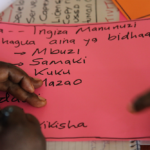 -- Ingiza Manunuzi
hagua aina ya bidhaa
→ Mbuzi
→ Samaki
→ Kuku
Mazao
kisha